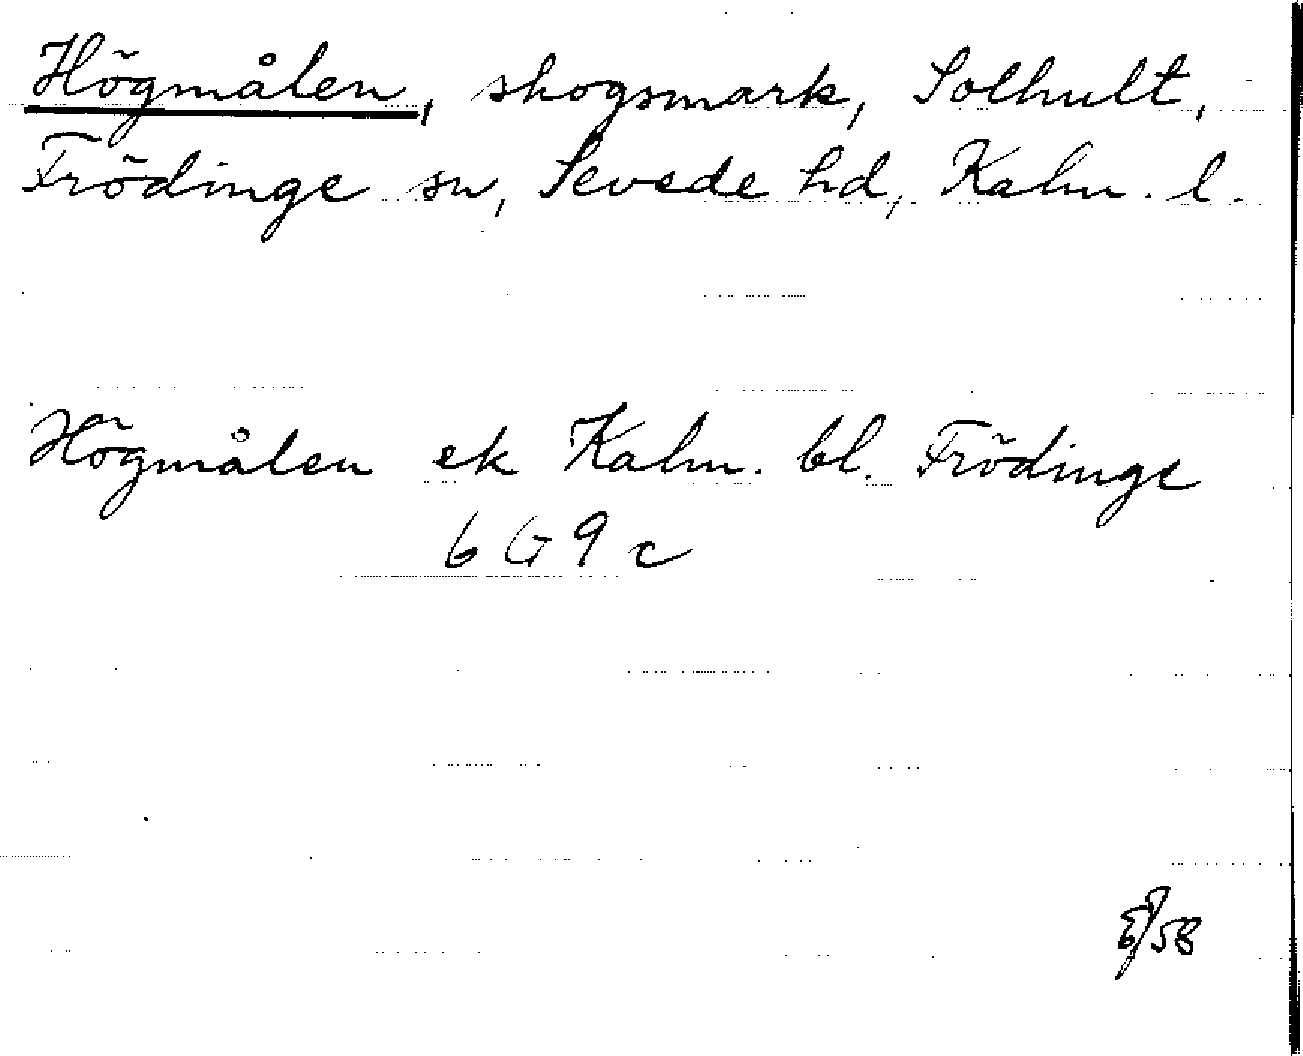 Högmålen, skogsmark, Solhult,
Frödinge sn, Sevede hd, Kalm. l.
Högmålen ek Kalm. bl. Frödinge
6 G 9 c